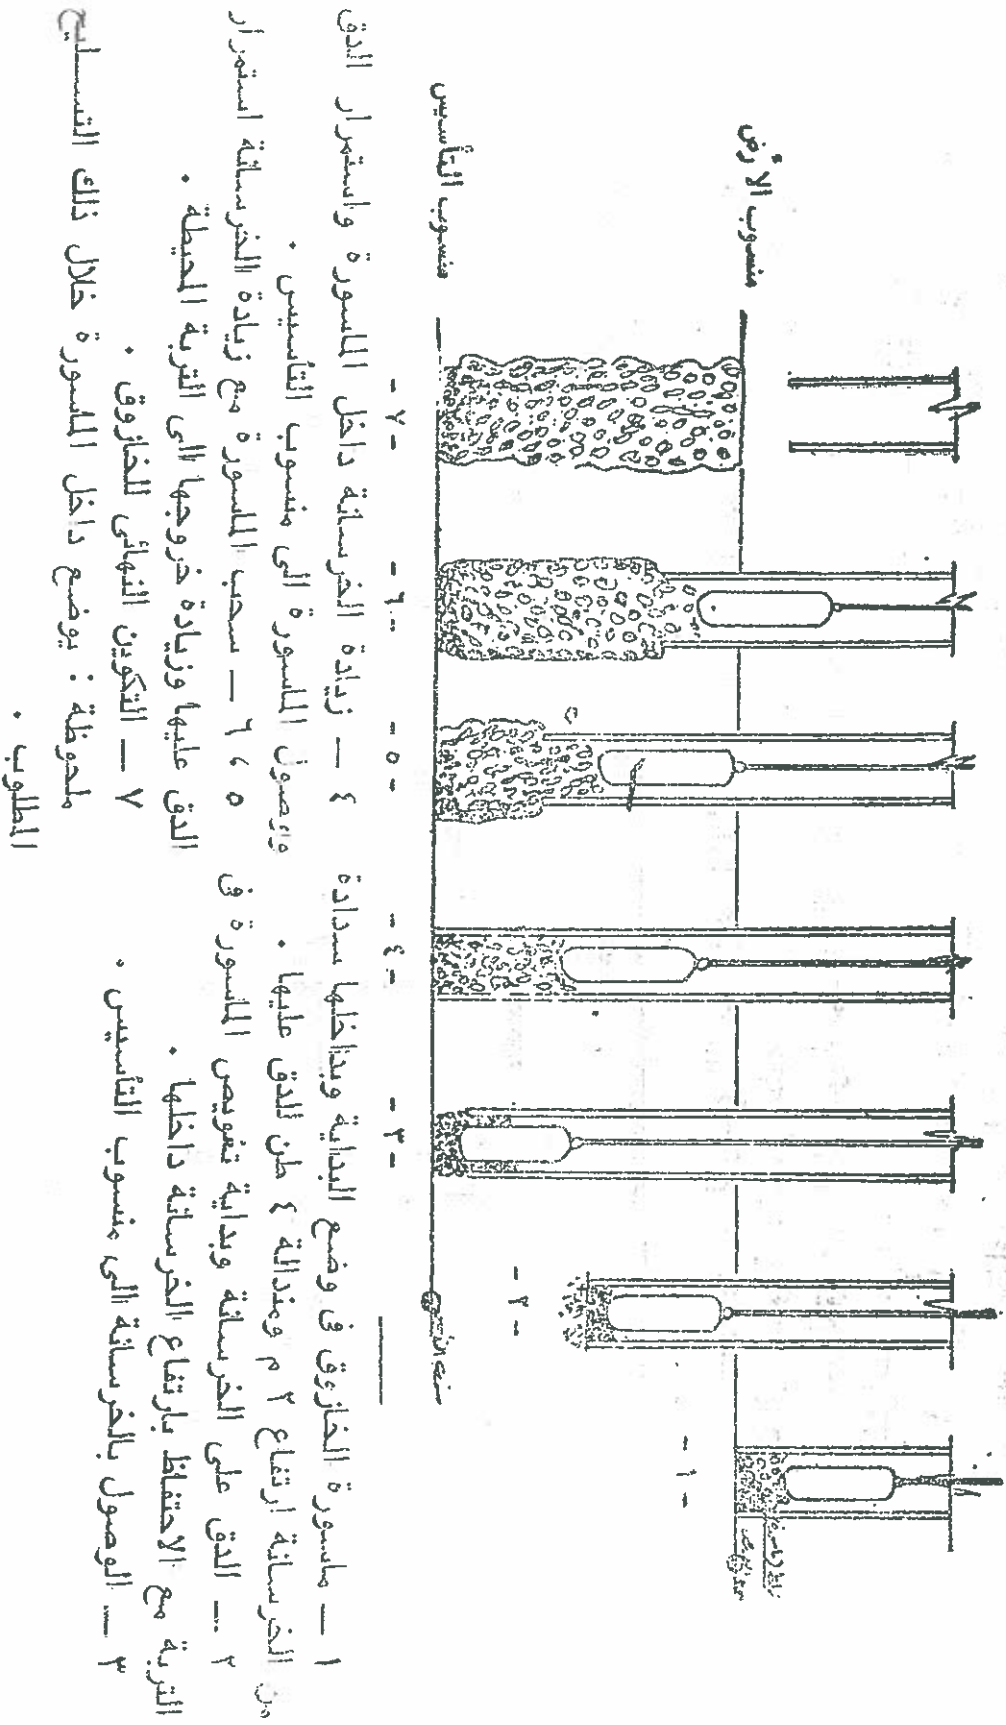 منسوب الأرض
منسوب التأسيس
- ١ -
- ٢ -
- ٣ -
- ٤ -
- ٥ -
- ٦ -
- ٧ -
١ — ماسورة الخازوق فى وضع البداية وبداخلها سدادة
من الخرسانة ارتفاع ٢ م ومندالة ٤ طن للدق عليها .
٢ — الدق على الخرسانة وبداية تغويص الماسورة فى
التربة مع الاحتفاظ بارتفاع الخرسانة داخلها .
٣ — الوصول بالخرسانة الى منسوب التأسيس .
٤ — زيادة الخرسانة داخل الماسورة واستمرار الدق
ووصول الماسورة الى منسوب التأسيس .
٥ ، ٦ — سحب الماسورة مع زيادة الخرسانة استمرار
الدق عليها وزيادة خروجها الى التربة المحيطة .
٧ — التكوين النهائى للخازوق .
ملحوظة : يوضع داخل الماسورة خلال ذلك التسليح
المطلوب .